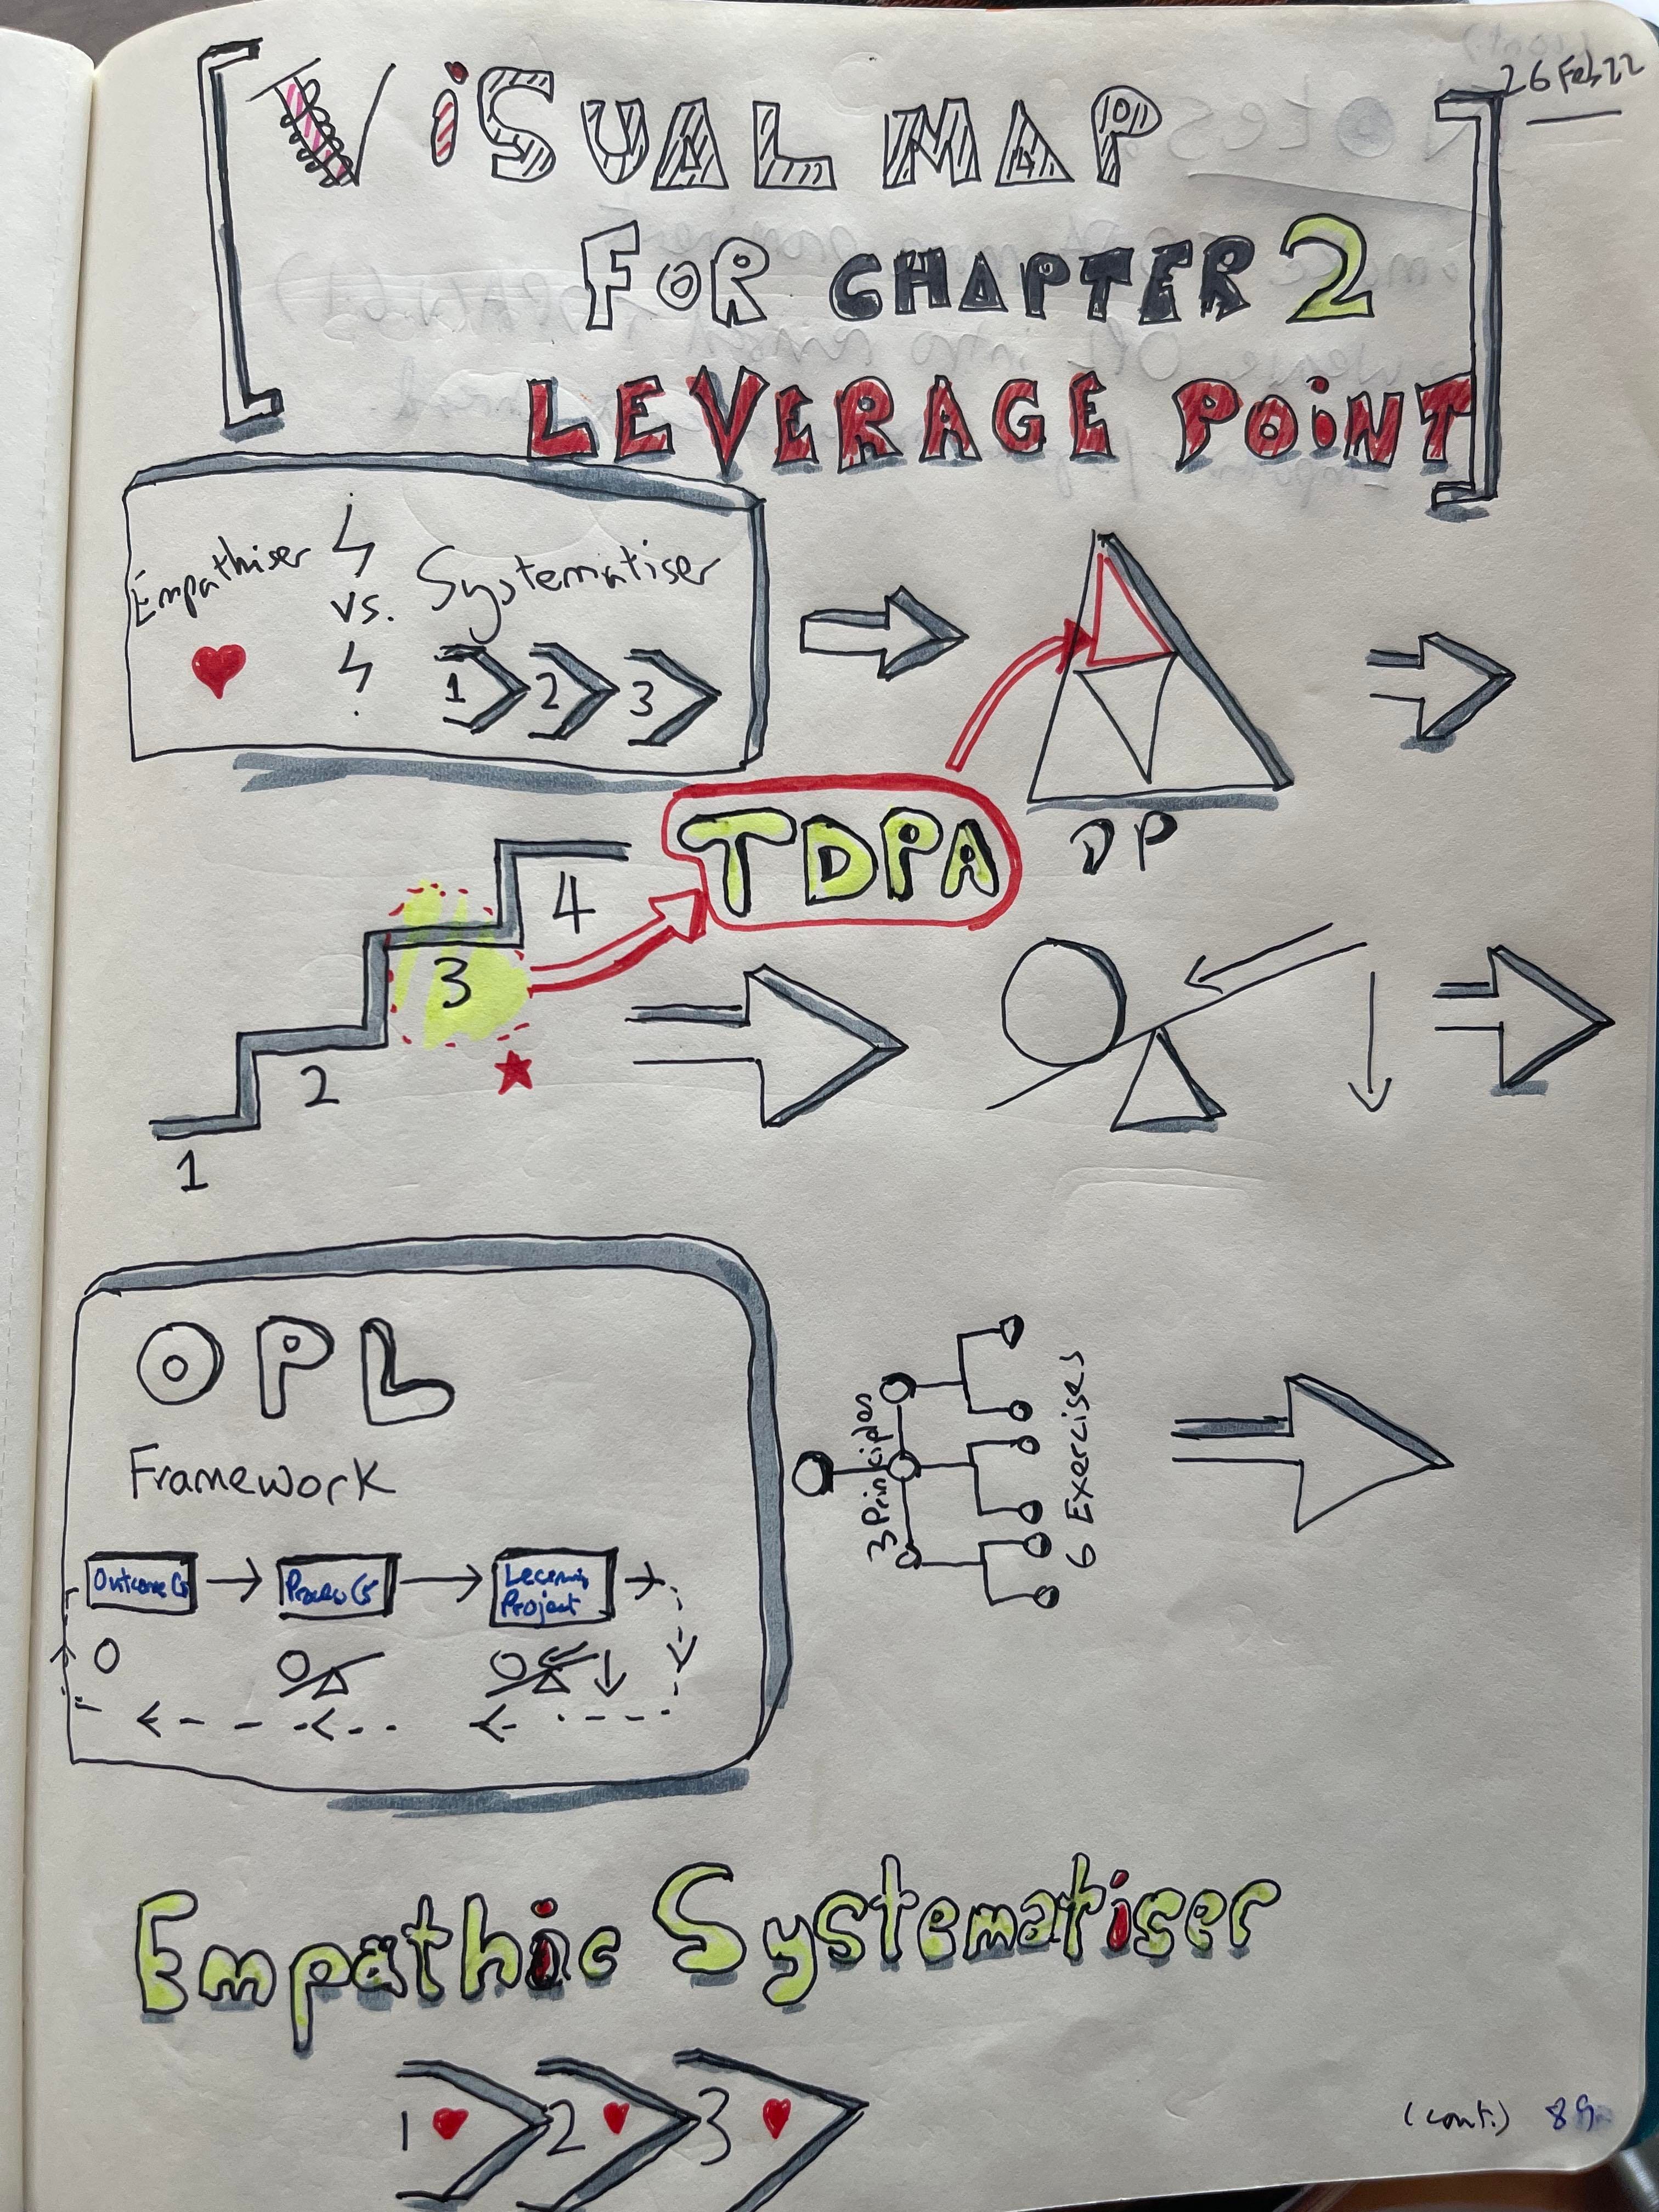 26 Feb 22
ViSUAL MAP
FOR CHAPTER 2
LEVERAGE POiNT
Empathiser vs. Systematiser
1 2 3
DP
TDPA
4
3
2
1
OPL
Framework
3 Principles
6 Exercises
Outcome Gs
Process Gs
Learning
Project
Empathic Systematiser
1 2 3
(cont.) 89